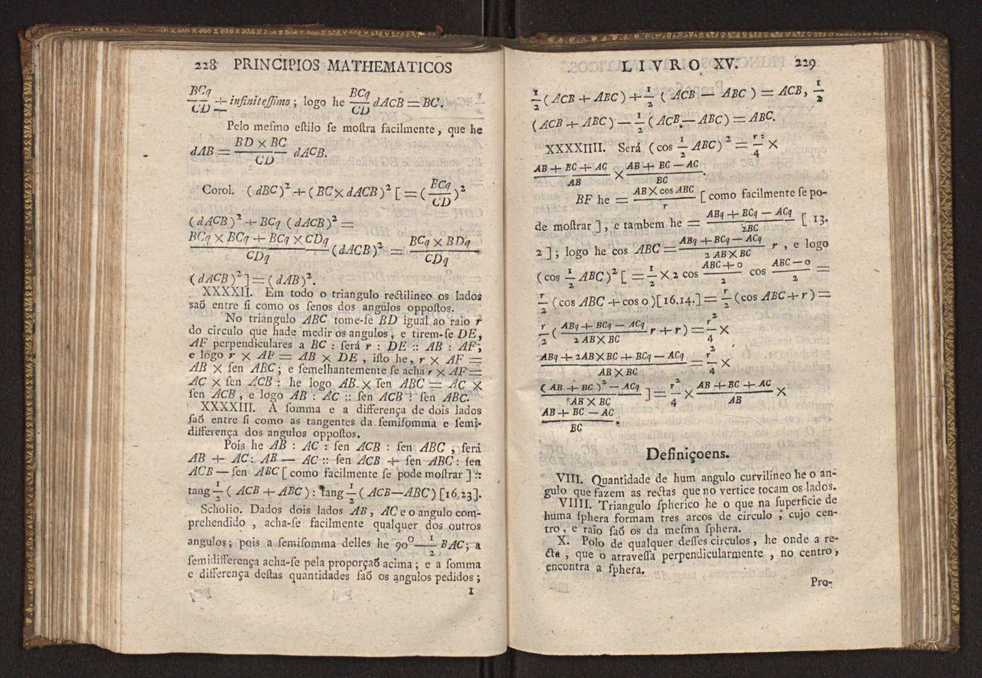 228 PRINCIPIOS MATHEMATICOS
BCq/CD + infiniteſſimo ; logo he BCq/CD dACB = BC.
Pelo meſmo eſtilo ſe moſtra facilmente, que he
dAB = BD × BC/CD dACB.
Corol. (dBC)² + (BC × dACB)² [ = (BCq/CD)²
(dACB)² + BCq (dACB)² =
BCq × BCq + BCq × CDq/CDq (dACB)² = BCq × BDq/CDq
(dACB)² ] = (dAB)².
XXXXII. Em todo o triangulo rectilineo os lados
saõ entre ſi como os ſenos dos angulos oppoſtos.
No triangulo ABC tome-ſe BD igual ao raio r
do circulo que hade medir os angulos; e tirem-ſe DE,
AF perpendiculares a BC : ſerá r : DE :: AB : AF;
e logo r × AF = AB × DE , iſto he, r × AF =
AB × ſen ABC; e ſemelhantemente ſe acha r × AF =
AC × ſen ACB : he logo AB × ſen ABC = AC ×
ſen ACB , e logo AB : AC :: ſen ACB : ſen ABC.
XXXXIII. A ſomma e a differença de dois lados
ſaõ entre ſi como as tangentes da ſemiſomma e ſemi-
differença dos angulos oppoſtos.
Pois he AB : AC : ſen ACB : ſen ABC , ſerá
AB + AC : AB — AC :: ſen ACB + ſen ABC : ſen
ACB — ſen ABC [ como facilmente ſe pode moſtrar ] ::
tang 1/2 ( ACB + ABC ) : tang 1/2 ( ACB—ABC) [16,23].
Scholio. Dados dois lados AB, AC e o angulo com-
prehendido , acha-ſe facilmente qualquer dos outros
angulos; pois a ſemiſomma delles he 90° — 1/2 BAC; a
ſemidifferença acha-ſe pela proporçaõ acima; e a ſomma
e differença deſtas quantidades ſaõ os angulos pedidos;
1
LIVRO XV. 229
1/2 (ACB + ABC) + 1/2 ( ACB — ABC ) = ACB, 1/2
(ACB + ABC) — 1/2 (ACB — ABC) = ABC.
XXXXIIII. Será (cos 1/2 ABC)² = r²/4 ×
AB + BC + AC/AB × AB + BC — AC/BC.
BF he = AB × cos ABC/r [ como facilmente ſe po-
de moſtrar ], e tambem he = ABq + BCq — ACq/2BC [ 13.
2 ] ; logo he cos ABC = ABq + BCq — ACq/2 AB × BC r , e logo
(cos 1/2 ABC)² [ = 1/2 × 2 cos ABC + 0/2 cos ABC — 0/2 =
r/2 (cos ABC + cos 0) [16,14.] = r/2 (cos ABC + r) =
r/2 ( ABq + BCq — ACq/2 AB × BC r + r) = r²/4 ×
ABq + 2AB × BC + BCq — ACq/AB × BC = r²/4 ×
( AB + BC )² — ACq/AB × BC ] = r²/4 × AB + BC + AC/AB ×
AB + BC — AC/BC.
Definiçoens.
VIII. Quantidade de hum angulo curvilineo he o an-
gulo que fazem as rectas que no vertice tocam os lados.
VIIII. Triangulo ſpherico he o que na ſuperficie de
huma ſphera formam tres arcos de circulo ; cujo cen-
tro, e raio ſaõ os da meſma ſphera.
X. Polo de qualquer deſſes circulos , he onde a re-
cta , que o atraveſſa perpendicularmente , no centro,
encontra a ſphera.
Pro-